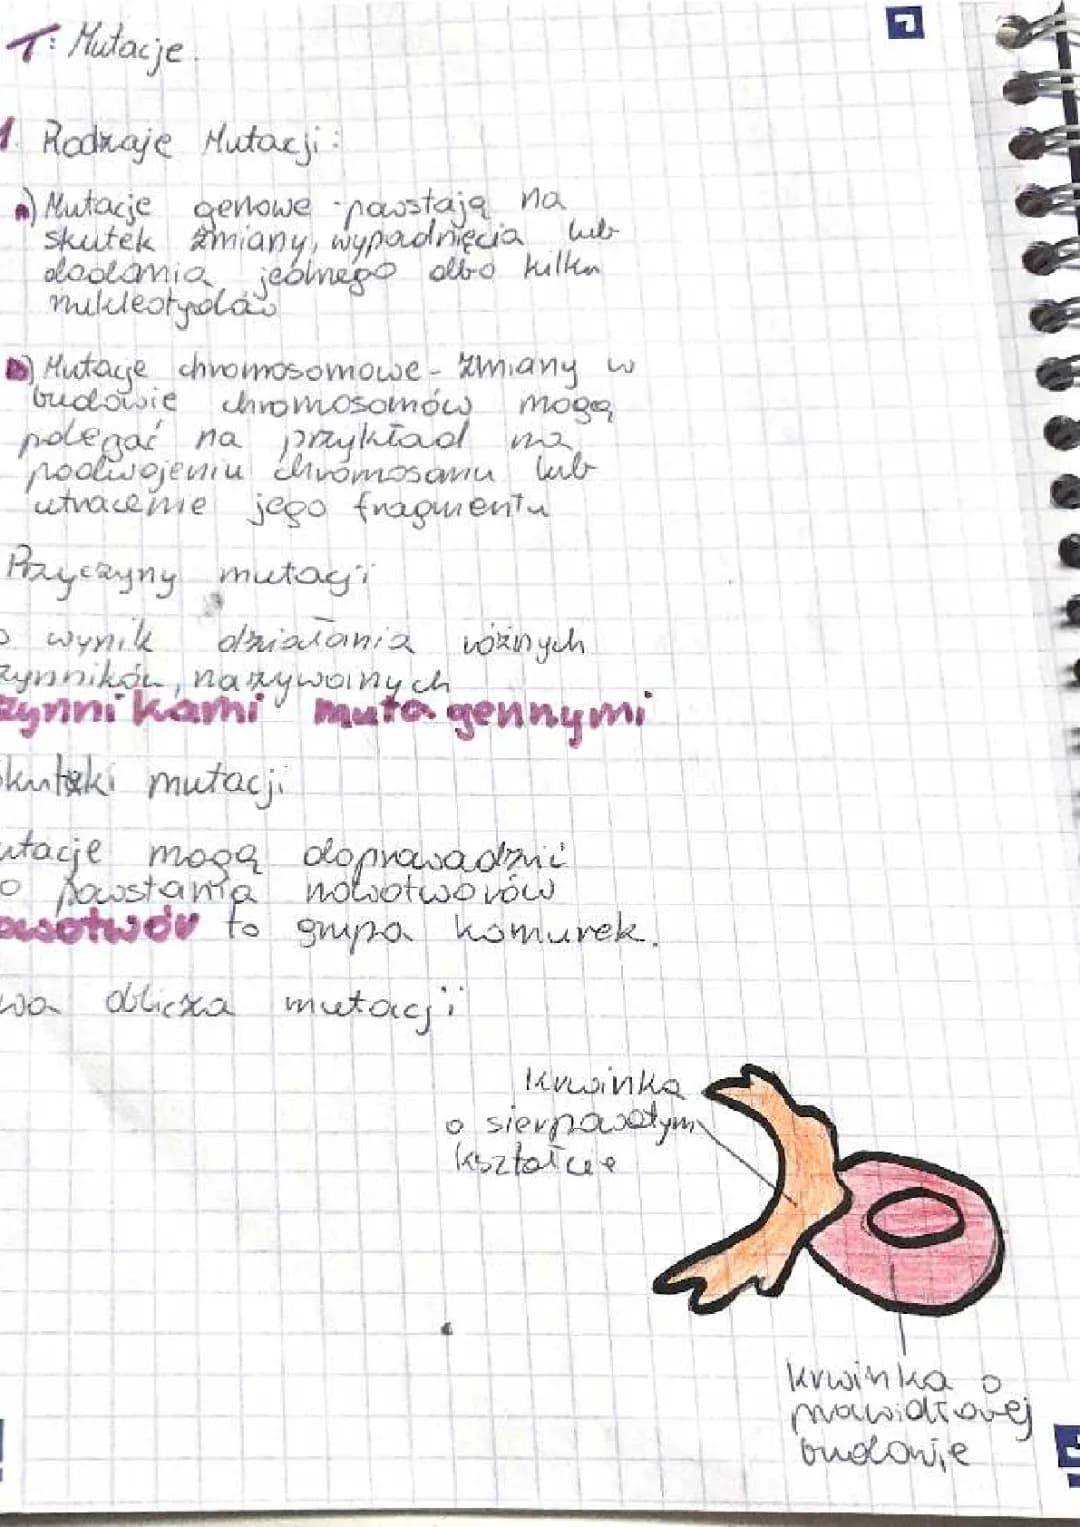 T: Mutacje.
1. Rodzaje Mutacji:
a) Mutacje genowe - powstają na
skutek zmiany, wypadnięcia lub
dodania jednego albo kilku
nukleotydów
b) Mutacje chromosomowe - zmiany w
budowie chromosomów mogą
polegać na przykład na
podwojeniu chromosomu lub
utracenie jego fragmentu
Przyczyny mutacji
o wynik działania różnych
zynników, nazywanych
zynnikami mutagennymi
skutki mutacji
utacje mogą doprowadzić
o powstania nowotworów
owotwór to grupa komurek.
wa oblicza mutacji
krwinka
o sierpowatym
kształcie
krwinka o
prawidłowej
budowie